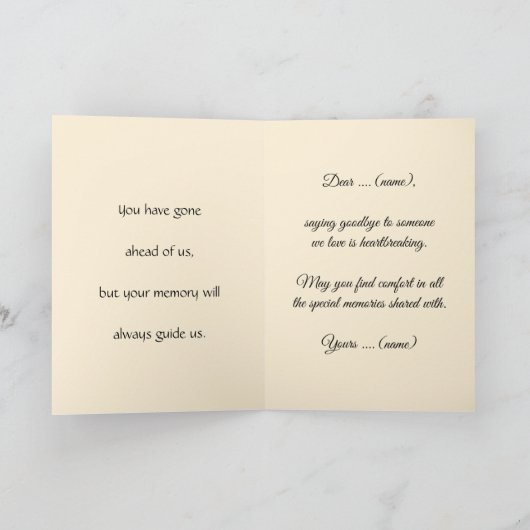 You have gone
ahead of us,
but your memory will
always guide us.
Dear .... (name),
saying goodbye to someone
we love is heartbreaking.
May you find comfort in all
the special memories shared with.
Yours .... (name)